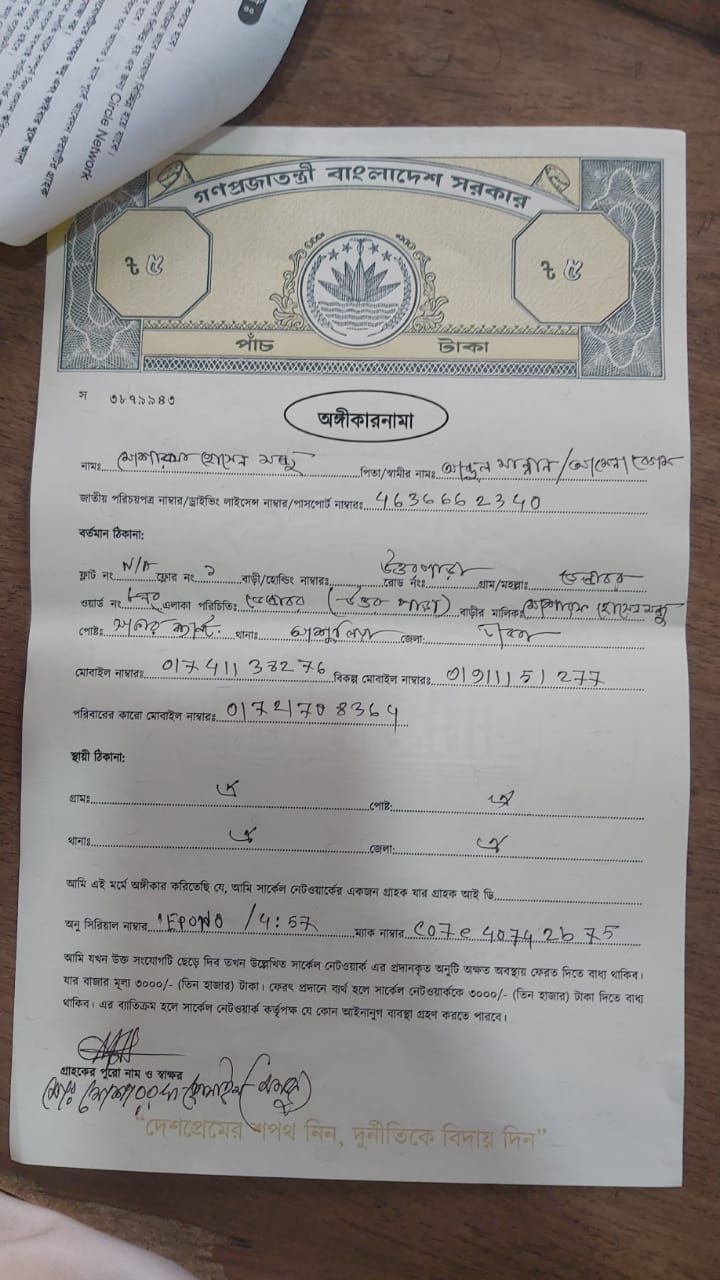 Circle Network
গণপ্রজাতন্ত্রী বাংলাদেশ সরকার
৳ ৫ ৳ ৫
পাঁচ টাকা
স ৩৮৭৯৯৪৩
অঙ্গীকারনামা
নামঃ মোশাররফ হোসেন মন্জু পিতা/স্বামীর নামঃ আব্দুল মান্নান/আমেনা বেগম
জাতীয় পরিচয়পত্র নাম্বার/ড্রাইভিং লাইসেন্স নাম্বার/পাসপোর্ট নাম্বারঃ 4636662340
বর্তমান ঠিকানা:
ফ্লাট নং N/A ফ্লোর নং ১ বাড়ী/হোল্ডিং নাম্বারঃ উত্তরপাড়া রোড নংঃ গ্রাম/মহল্লাঃ
ওয়ার্ড নং এলাকা পরিচিতিঃ (উত্তর পাড়া) বাড়ীর মালিকঃ মোশাররফ হোসেন মন্জু
পোষ্টঃ থানাঃ জেলা: ঢাকা
মোবাইল নাম্বারঃ 01741138276 বিকল্প মোবাইল নাম্বারঃ 01911151277
পরিবারের কারো মোবাইল নাম্বারঃ 01721708364
স্থায়ী ঠিকানা:
গ্রামঃ ঐ পোষ্ট: ঐ
থানাঃ ঐ জেলা: ঐ
আমি এই মর্মে অঙ্গীকার করিতেছি যে, আমি সার্কেল নেটওয়ার্কের একজন গ্রাহক যার গ্রাহক আই ডি
অনু সিরিয়াল নাম্বার EPONO /4:57 ম্যাক নাম্বার C07e40742b75
আমি যখন উক্ত সংযোগটি ছেড়ে দিব তখন উল্লেখিত সার্কেল নেটওয়ার্ক এর প্রদানকৃত অনুটি অক্ষত অবস্থায় ফেরত দিতে বাধ্য থাকিব।
যার বাজার মূল্য ৩০০০/- (তিন হাজার) টাকা। ফেরৎ প্রদানে ব্যর্থ হলে সার্কেল নেটওয়ার্ককে ৩০০০/- (তিন হাজার) টাকা দিতে বাধ্য
থাকিব। এর ব্যতিক্রম হলে সার্কেল নেটওয়ার্ক কর্তৃপক্ষ যে কোন আইনানুগ ব্যবস্থা গ্রহণ করতে পারবে।
গ্রাহকের পুরো নাম ও স্বাক্ষর
মোঃ মোশাররফ হোসাইন (মনজু)
“দেশপ্রেমের শপথ নিন, দুর্নীতিকে বিদায় দিন”